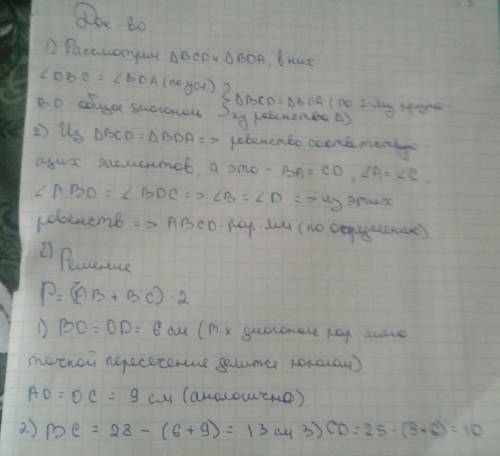 Док-во
1) Рассмотрим ΔBCD и ΔBDA, в них:
∠DBC = ∠BDA (по усл)
BD общая диагональ } ΔBCD = ΔBDA (по 2-му призна-
ку равенства Δ)
2) Из ΔBCD = ΔBDA => равенство соответству-
ющих элементов, а это - BA = CD, ∠A = ∠C,
∠ABD = ∠BDC => ∠B = ∠D => из этих
равенств => ABCD - пар-мм (по )
2)
Решение
P = (AB + BC) · 2
1) BO = OD = 6 см (т.к диагонали пар-мма
точкой пересечение делится пополам)
AO = OC = 9 см (аналогично)
2) BC = 28 - (6 + 9) = 13 см 3) CD = 25 - (9+6) = 10